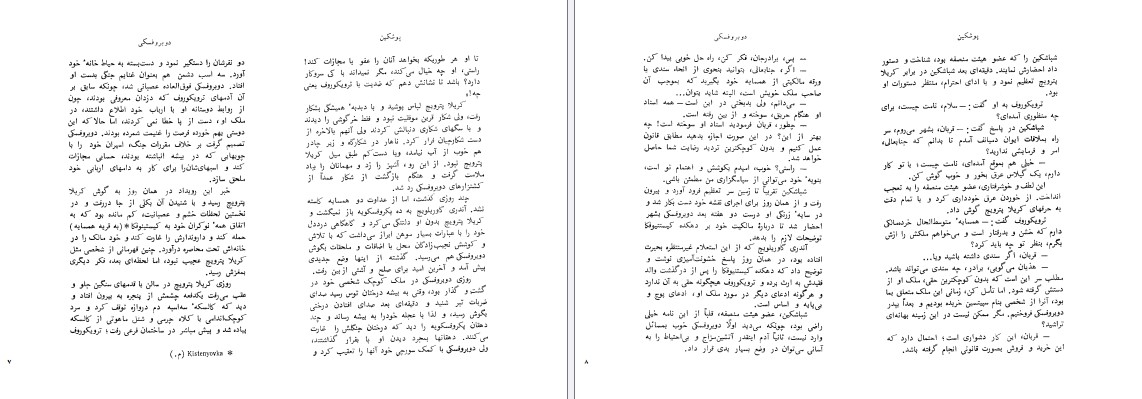 پوشکین
تا او هر طوریکه بخواهد آنان را عفو یا مجازات کند!
راستی، او چه خیال می‌کند، مگر نمیداند با کی سروکار
دارد؟ باشد تا نشانش دهم که ضدیت با ترویکوروف یعنی
چه!»
کریلا پترویچ لباس پوشید و با دبدبهٔ همیشگی بشکار
رفت، ولی شکار قرین موفقیت نبود و فقط خرگوشی را دیدند
و با سگهای شکاری دنبالش کردند ولی آنهم بالاخره از
دست شکارچیان فرار کرد. ناهار در شکارگاه و زیر چادر
هم خوب از آب نیامد، ویا دست‌کم طبق میل کریلا
پترویچ نبود. از این رو، آشپز را زد و مهمانان را بباد
ملامت گرفت و هنگام بازگشت از شکار عمداً از
کشتزارهای دوبروفسکی رد شد.
چند روزی گذشت، اما از عداوت دو همسایه کاسته
نشد. آندری گاوریلویچ به ده پکروفسکویه باز نمیگشت و
کریلا پترویچ بدون او دلتنگی می‌کرد و گاهگاهی درددل
خود را با عبارات بسیار موهن ابراز می‌داشت که با تلاش
و کوشش نجیب‌زادگان محل با اضافات و ملحقات بگوش
دوبروفسکی هم می‌رسید. گذشته از اینها وضع جدیدی
پیش آمد و آخرین امید برای صلح و آشتی ازبین رفت.
روزی دوبروفسکی در ملک کوچک شخصی خود در
گشت و گذار بود، وقتی به بیشه درختان توس رسید صدای
ضربات تبر شنید و دقیقه‌ای بعد صدای افتادن درختی
بگوش رسید، و لذا با عجله خودرا به بیشه رساند و چند
دهقان پکروفسکویه را دید که درختان جنگلش را غارت
می‌کنند. دهقانها بمجرد دیدن او با بفرار گذاشتند،
ولی دوبروفسکی با کمک سورچی خود آنها را تعقیب کرد و
دوبروفسکی
دو نفرشان را دستگیر نمود و دست‌بسته به حیاط خانهٔ خود
آورد. سه اسب دشمن هم بعنوان غنایم جنگی بدست او
افتاد. دوبروفسکی فوق‌العاده عصبانی شد، چونکه سابق بر
آن آدمهای ترویکوروف که دزدان معروفی بودند، چون
از روابط دوستانه او با ارباب خود اطلاع داشتند، در
ملک او، دست از پا خطا نمی کردند، اما حالا که این
دوستی بهم خورده فرصت را غنیمت شمرده بودند. دوبروفسکی
تصمیم گرفت بر خلاف مقررات جنگ، اسیران خود را با
چوبهایی که در بیشه انباشته بودند، حسابی مجازات
کند و اسبهای‌شان‌را برای کار به دامهای اربابی خود
ملحق سازد.
خبر این رویداد در همان روز به گوش کریلا
پترویچ رسید و با شنیدن آن بکلی از جا دررفت و در
نخستین لحظات خشم و عصبانیت، کم مانده بود که به
اتفاق همهٔ نوکران خود به کیستنیوفکا* (به قریه همسایه)
حمله کند و دارو‌ندارش را غارت کند و خود مالک را در
خانه‌اش تحت محاصره درآورد. چنین قهرمانی از شخصی مثل
کریلا پترویچ عجیب نبود، اما لحظه‌ای بعد، فکر دیگری
بمغزش رسید.
روزی کریلا پترویچ در سالن با قدمهای سنگین جلو و
عقب می‌رفت یکدفعه چشمش از پنجره به بیرون افتاد و
دید که کالسکهٔ سه‌اسبه دم دروازه توقف کرد و مرد
کوچک‌اندامی با کلاه چرمی و شنل ماهوتی از کالسکه
پیاده شد و پیش مباشر در ساختمان فرعی رفت؛ ترویکوروف
* Kistenyovka (م.)
۷
پوشکین
شباشکین را که عضو هیئت منصفه بود، شناخت و دستور
داد احضارش نمایند. دقیقه‌ای بعد شباشکین در برابر کریلا
پترویچ تعظیم نمود و با ادای احترام، منتظر دستورات او
بود.
ترویکوروف به او گفت: — سلام، نامت چیست، برای
چه منظوری آمده‌ای؟
شباشکین در پاسخ گفت: — قربان، بشهر می‌روم، سر
راه بملاقات ایوان دمیانف آمدم تا بدانم که جنابعالی،
امر و فرمایشی ندارید؟
— خیلی هم بموقع آمده‌ای، نامت چیست؛ با تو کار
دارم، یک گیلاس عرق بخور و خوب گوش کن.
این لطف و خوشرفتاری، عضو هیئت منصفه را به تعجب
انداخت. از خوردن عرق خودداری کرد و با تمام دقت
به حرفهای کریلا پترویچ گوش داد.
ترویکوروف گفت: — همسایهٔ متوسط‌الحال خرده‌مالکی
دارم که خشن و بدرفتار است و می‌خواهم ملکش را ازش
بگیرم، بنظر تو چه باید کرد؟
— قربان، اگر سندی داشته باشید ویا...
— هذیان می‌گویی، برادر، چه سندی می‌تواند باشد.
مطلب سر این است که بدون کوچکترین حقی، ملک او از
دستش گرفته شود. اما تأمل کن، زمانی این ملک متعلق بما
بود، آنرا از شخصی بنام سپیتسین خریده بودیم و بعداً بپدر
دوبروفسکی فروختیم. مگر ممکن نیست در این زمینه بهانه‌ای
تراشید؟
— قربان، این کار دشواری است؛ احتمال دارد که
این خرید و فروش بصورت قانونی انجام گرفته باشد.
دوبروفسکی
— پس، برادرجان، فکر کن، راه حل خوبی پیدا کن.
— اگر، جنابعالی، بتوانید بنحوی از انحاء سندی یا
ورقه مالکیتی از همسایه خود بگیرید که بموجب آن
صاحب ملک خویش است، البته شاید بتوان...
— می‌دانم، ولی بدبختی در این است — همه اسناد
او هنگام حریق، سوخته و از بین رفته است.
— چطور، قربان فرمودید اسناد او سوخته است! چه
بهتر از این؟ در این صورت اجازه بدهید مطابق قانون
عمل کنیم و بدون کوچکترین تردید رضایت شما حاصل
خواهد شد.
— راستی؟ خوب، امیدم بکوشش و اهتمام تو است،
بنوبهٔ خود می‌توانی از سپاسگزاری من مطمئن باشی.
شباشکین تقریباً تا زمین سر تعظیم فرود آورد و بیرون
رفت و از همان روز برای اجرای نقشه خود دست بکار شد و
در سایهٔ زرنگی او درست دو هفته بعد دوبروفسکی بشهر
احضار شد تا دربارهٔ مالکیت خود بر دهکده کیستنیوفکا
توضیحات لازم را بدهد.
آندری گاوریلویچ که از این استعلام غیرمنتظره بحیرت
افتاده بود، در همان روز پاسخ خشونت‌آمیزی نوشت و
توضیح داد که دهکده کیستنیوفکا را پس از درگذشت والد
فقیدش به ارث برده و ترویکوروف هیچگونه حقی به آن ندارد
و هرگونه ادعای دیگر در مورد ملک او، ادعای پوچ و
بی‌پایه و اساس است.
شباشکین، عضو هیئت منصفه، قلباً از این نامه خیلی
راضی بود، چونکه می‌دید اولاً دوبروفسکی خوب بمسائل
وارد نیست، ثانیاً آدم اینقدر آتشین‌مزاج و بی‌احتیاط را به
آسانی می‌توان در وضع بسیار بدی قرار داد.
۸